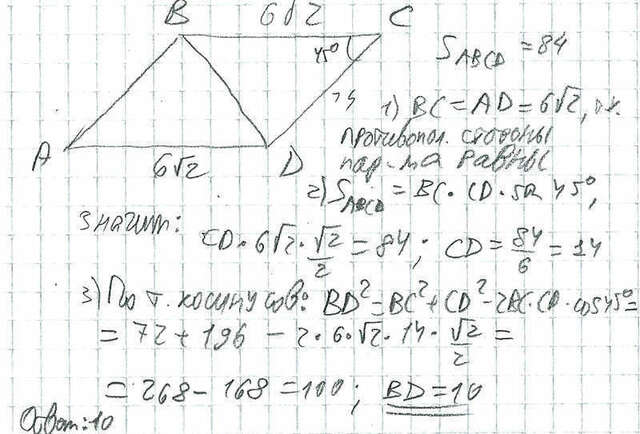 B 6√2 C
45°
S ABCD = 84
14
1) BC = AD = 6√2, т.к.
противопол. стороны
A 6√2 D
пар-ма равны
2) S ABCD = BC · CD · sin 45°,
значит:
CD · 6√2 · √2/2 = 84; CD = 84/6 = 14
3) По т. косинусов: BD² = BC² + CD² - 2BC·CD·cos45° =
= 72 + 196 - 2·6·√2·14·√2/2 =
= 268 - 168 = 100; BD = 10
Ответ: 10